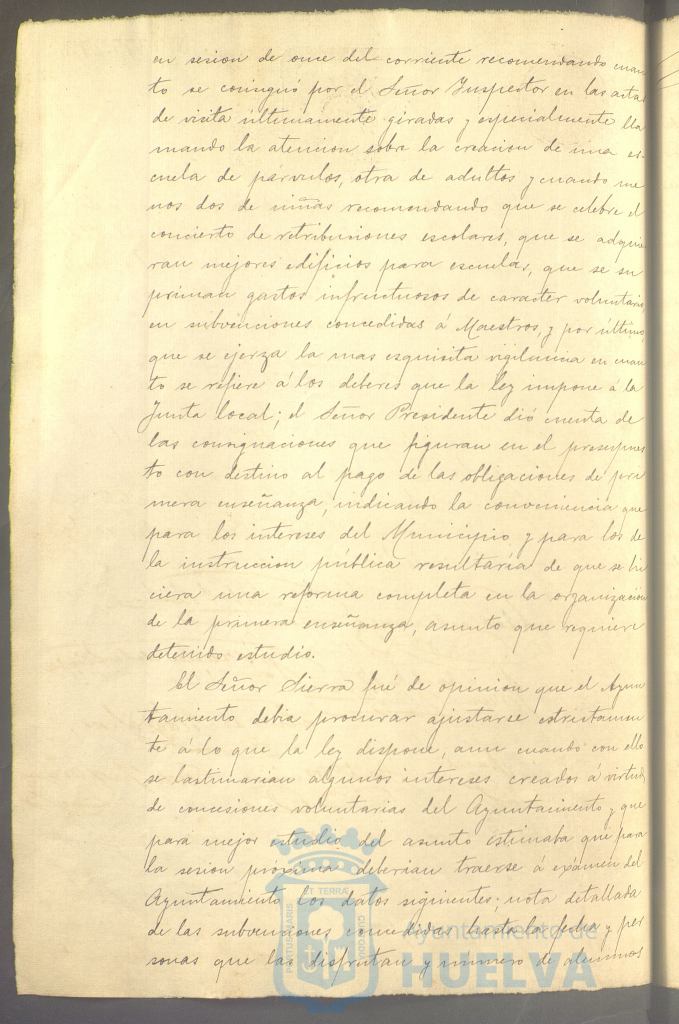 en sesion de once del corriente recomendando cuan
to se consignó por el Señor Inspector en las actas
de visita últimamente giradas y especialmente lla
mando la atencion sobre la creacion de una es-
cuela de párvulos, otra de adultos y cuando me
nos dos de niñas recomendando que se celebre el
concierto de retribuciones escolares, que se adquie
ran mejores edificios para escuelas, que se su
priman gastos infructuosos de caracter voluntario
en subvenciones concedidas á Maestros, y por último
que se ejerza la mas esquisita vigilancia en cuan
to se refiere á los deberes que la ley impone á la
Junta local; el Señor Presidente dió cuenta de
las consignaciones que figuran en el presupues
to con destino al pago de las obligaciones de pri
mera enseñanza, indicando la conveniencia que
para los intereses del Municipio y para los de
la instruccion pública resultaría de que se hi
ciera una reforma completa en la organización
de la primera enseñanza, asunto que requiere
detenido estudio.
El Señor Sierra fué de opinion que el Ayun
tamiento debia procurar ajustarse estrictamen
te á lo que la ley dispone, aun cuando con ello
se lastimarian algunos intereses creados á virtud
de concesiones voluntarias del Ayuntamiento y que
para mejor estudio del asunto estimaba que para
la sesion próxima deberian traerse á exámen del
Ayuntamiento los datos siguientes; nota detallada
de las subvenciones concedidas hasta la fecha y per
sonas que las disfrutan y número de alumnos
PORTUS MARIS
ET TERRÆ
CUSTODIA
Ayuntamiento de
HUELVA